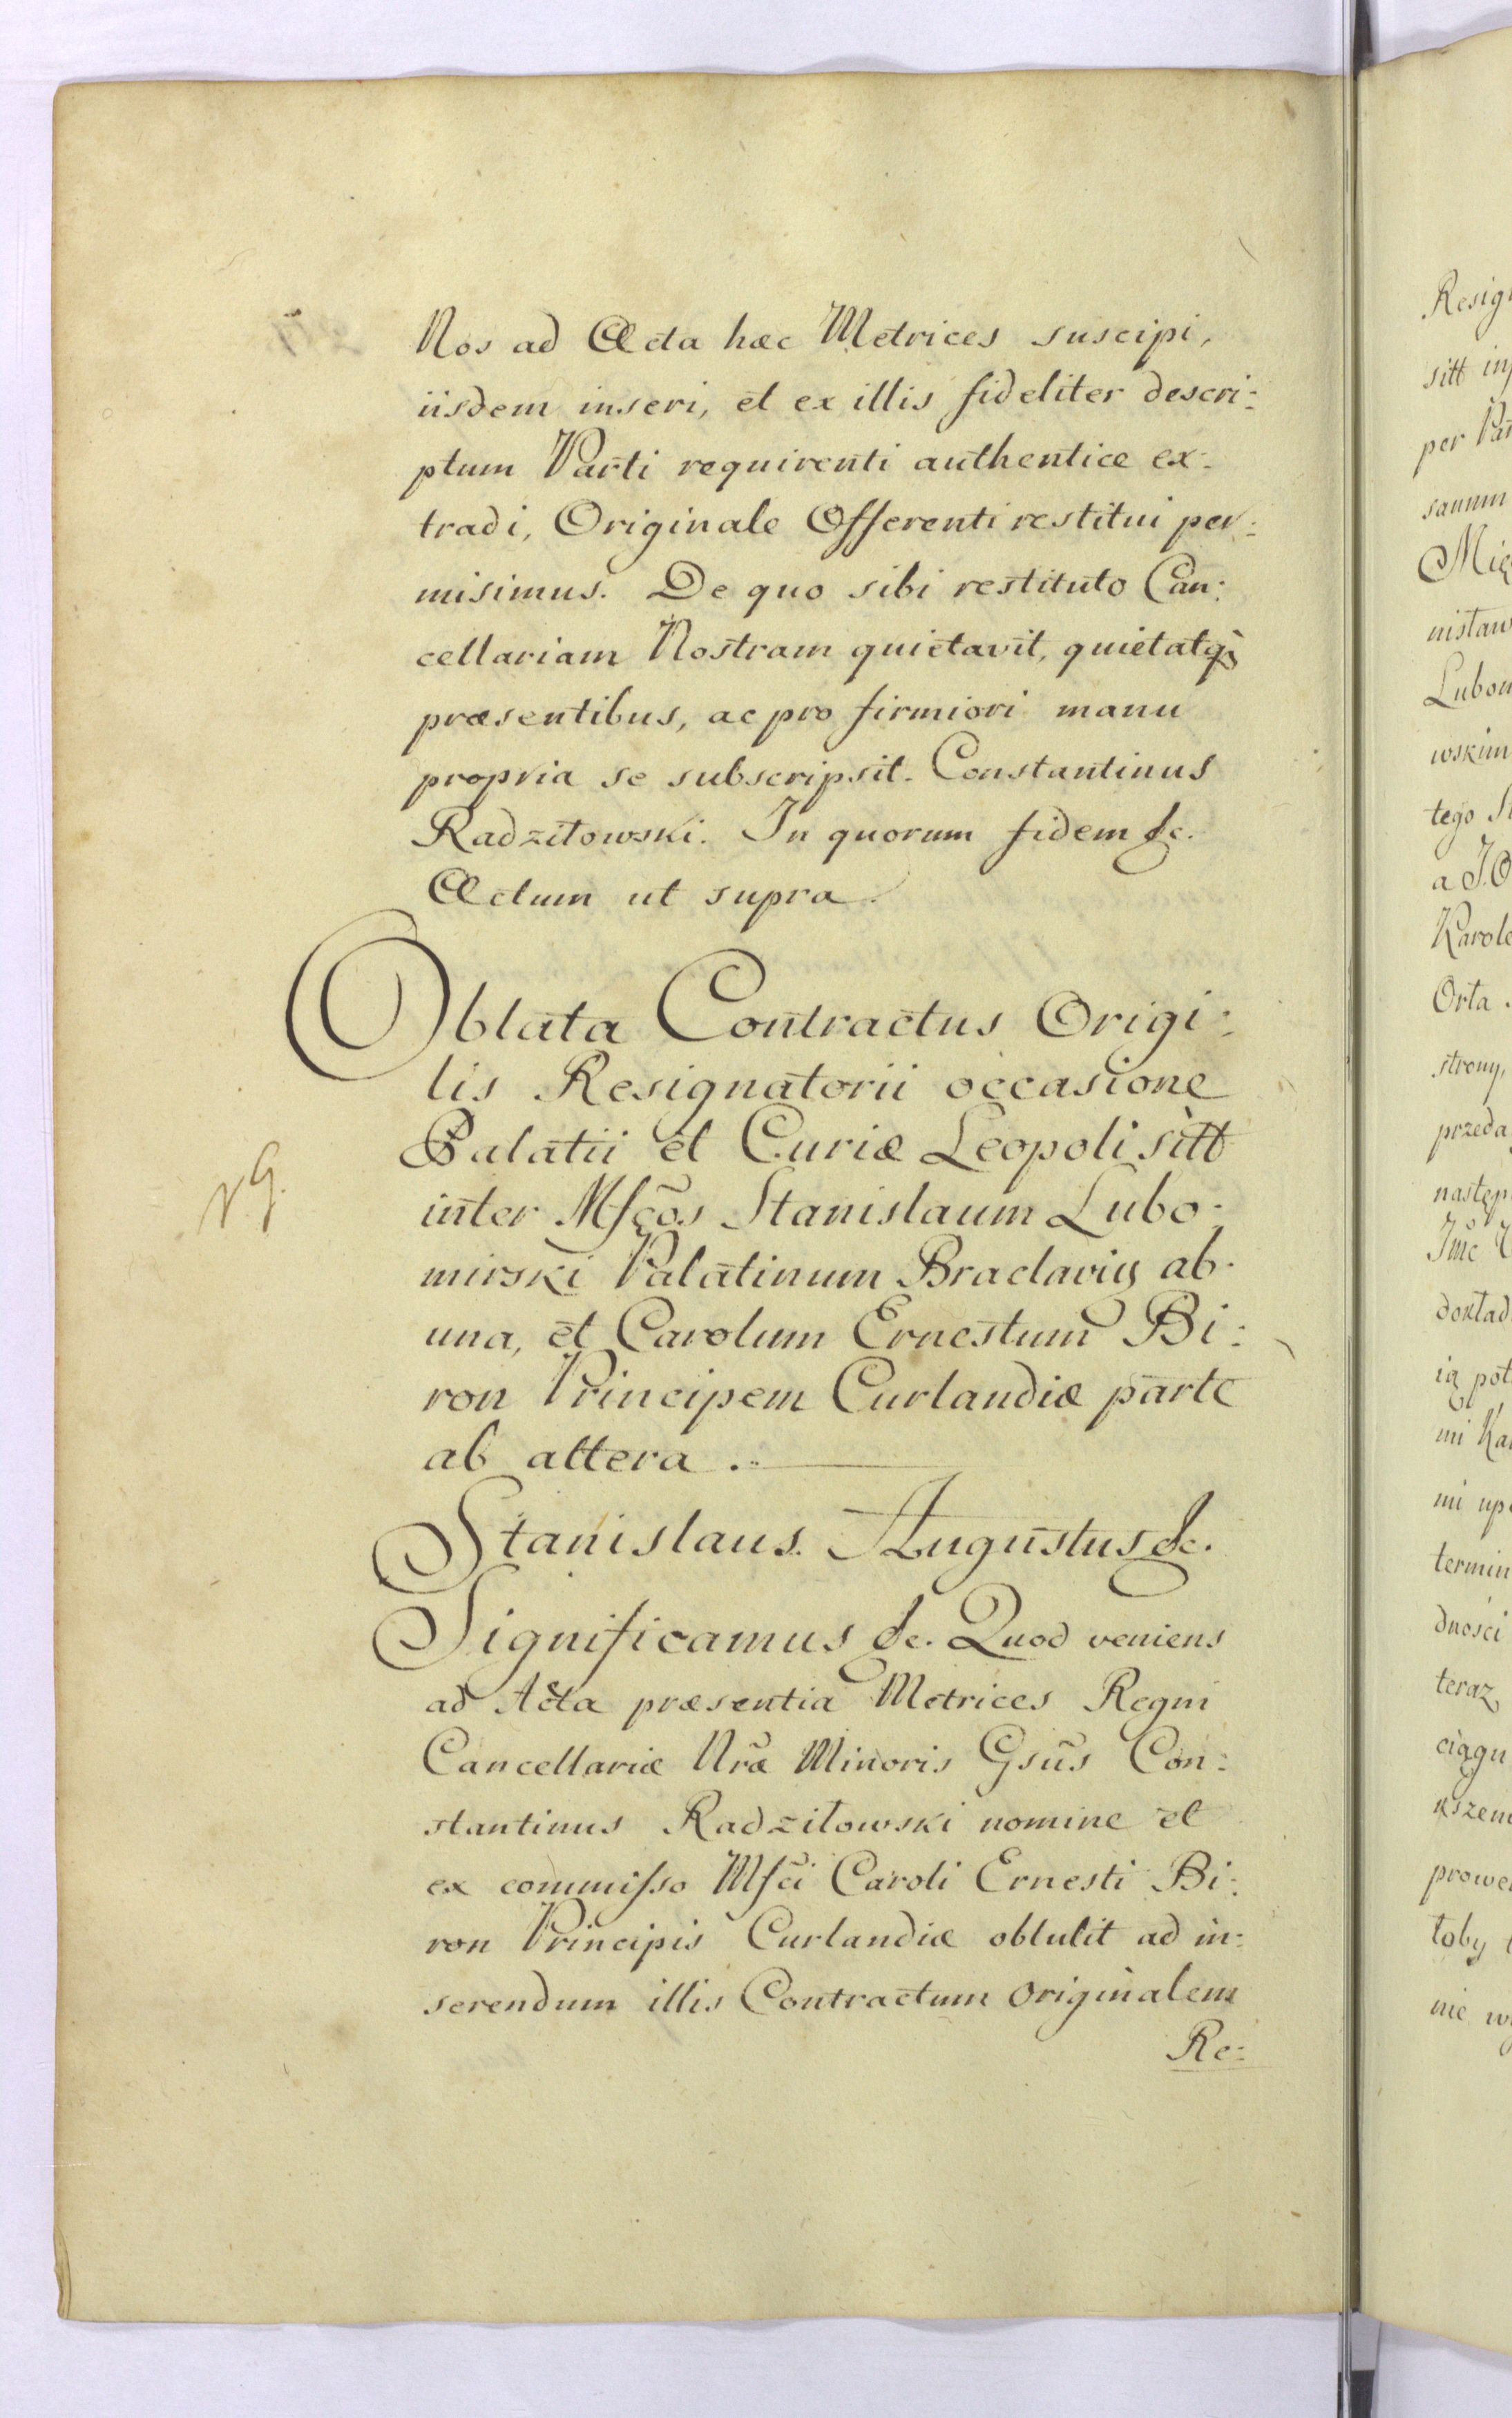 Nos ad Acta hæc Metrices suscipi,
iisdem inseri, et ex illis fideliter descri:
ptum Parti requirenti authentice ex:
tradi, Originale Offerenti restitui per:
misimus. De quo sibi restituto Can:
cellariam Nostram quietavit, quietatq;
præsentibus, ac pro firmiori manu
propria se subscripsit. Constantinus
Radziłowski. In quorum fidem &c.
Actum ut supra.
Oblata Contractus Origi:
lis Resignatorii occasione
Palatii et Curiæ Leopoli sitt
inter Mfcos Stanislaum Lubo:
N.9.
mirski Palatinum Braclaviæ ab
una, et Carolum Ernestum Bi:
ron Principem Curlandiæ parte
ab altera.
Stanislaus Augustus &c.
Significamus &c. Quod veniens
ad Acta præsentia Metrices Regni
Cancellariæ Nræ Minoris Gsus Con:
stantinus Radziłowski nomine et
ex commisso Mfci Caroli Ernesti Bi:
ron Principis Curlandiæ obtulit ad in:
serendum illis Contractum Originalem
Re:
Resig
sitt
per
nistaw
wskim
tego
a J.O
Orta
strony,
przeda
następ
Jmć
mi
termin
dności
teraz
ciągu
toby
nie